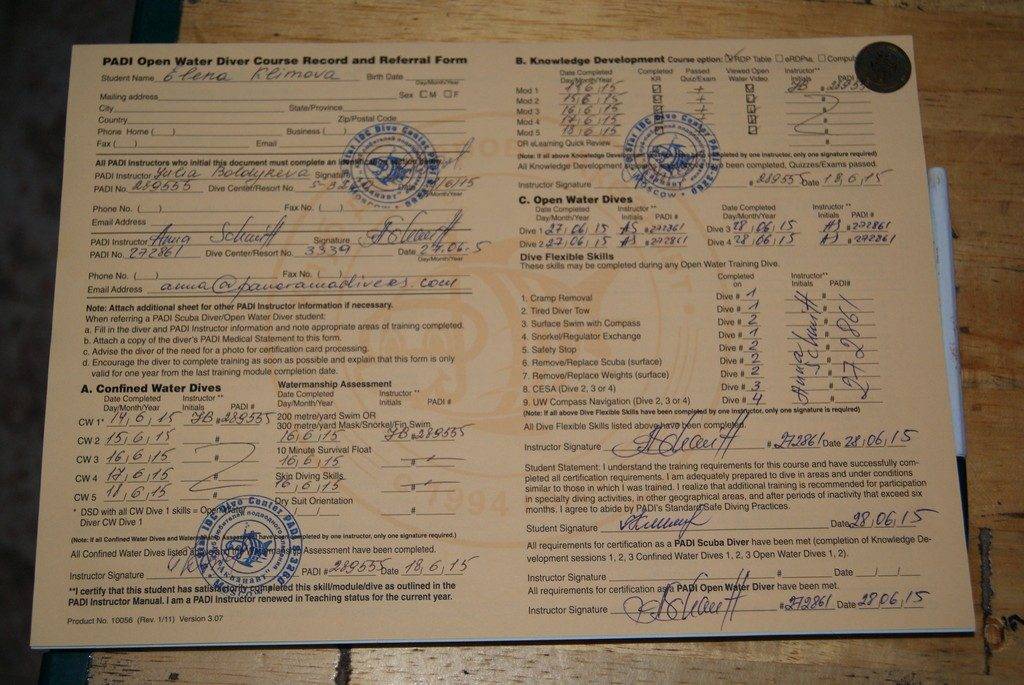 PADI Open Water Diver Course Record and Referral Form
Student Name Elena Klimova Birth Date
Day/Month/Year
Mailing address Sex ☐M ☐F
City State/Province
Country Zip/Postal Code
Phone Home ( ) Business ( )
Fax ( ) Email
All PADI Instructors who initial this document must complete an
PADI Instructor Yulia Boldyreva Signature
PADI No. 289555 Dive Center/Resort No.
Phone No. ( ) Fax No. ( )
Email Address
PADI Instructor Anna Schmitt Signature
PADI No. 272861 Dive Center/Resort No. 3339 Date
Day/Month/Year
Phone No. ( ) Fax No. ( )
Email Address anna@panoramadivers.com
Note: Attach additional sheet for other PADI Instructor information if necessary.
When referring a PADI Scuba Diver/Open Water Diver student:
a. Fill in the diver and PADI Instructor information and note appropriate areas of training completed.
b. Attach a copy of the diver's PADI Medical Statement to this form.
c. Advise the diver of the need for a photo for certification card processing.
d. Encourage the diver to complete training as soon as possible and explain that this form is only
valid for one year from the last training module completion date.
A. Confined Water Dives
Date Completed Day/Month/Year Instructor** Initials PADI #
CW 1* 14,6,15 JB #289555
CW 2 15,6,15 #
CW 3 16,6,15 #
CW 4 17,6,15 #
CW 5 18,6,15 #
* DSD with all CW Dive 1 skills = Open
Diver CW Dive 1
Watermanship Assessment
Date Completed Day/Month/Year Instructor** Initials PADI #
200 metre/yard Swim OR
300 metre/yard Mask/Snorkel/Fin Swim
16,6,15 JB #289555
10 Minute Survival Float
16,6,15 #
Skin Diving Skills
16,6,15 #
Dry Suit Orientation
(Note: If all Confined Water Dives and completed by one instructor, only one signature required.)
All Confined Water Dives listed Assessment have been completed.
Instructor Signature PADI #289555 Date 18,6,15
**I certify that this student has satisfactorily completed this skill/module/dive as outlined in the
PADI Instructor Manual. I am a PADI Instructor renewed in Teaching status for the current year.
Product No. 10056 (Rev. 1/11) Version 3.07
B. Knowledge Development Course option: ☑RDP Table ☐ eRDPML ☐
Date Completed Day/Month/Year Completed KR Passed Quiz/Exam Viewed Open Water Video Instructor** Initials PADI
Mod 1 14,6,15 ☑ + ☑ JB #289555
Mod 2 15,6,15 ☑ + ☑ #
Mod 3 16,6,15 ☑ + ☑ #
Mod 4 17,6,15 ☑ + ☑ #
Mod 5 18,6,15 ☑ + ☑ #
OR eLearning Quick Review
(Note: If all above Knowledge completed by one instructor, only one signature required)
All Knowledge Development been completed, Quizzes/Exams passed.
Instructor Signature #289555 Date 18,6,15
C. Open Water Dives
Date Completed Day/Month/Year Instructor** Initials PADI # Date Completed Day/Month/Year Instructor** Initials PADI #
Dive 1 27,06,15 AS #272861 Dive 3 28,06,15 AS #272861
Dive 2 27,06,15 AS #272861 Dive 4 28,06,15 AS #272861
Dive Flexible Skills
These skills may be completed during any Open Water Training Dive.
Completed on Instructor** Initials PADI#
1. Cramp Removal Dive # 1
2. Tired Diver Tow Dive # 1
3. Surface Swim with Compass Dive # 2
4. Snorkel/Regulator Exchange Dive # 1
5. Safety Stop Dive # 2
6. Remove/Replace Scuba (surface) Dive # 2
7. Remove/Replace Weights (surface) Dive # 2
8. CESA (Dive 2, 3 or 4) Dive # 3
9. UW Compass Navigation (Dive 2, 3 or 4) Dive # 4
Anna Schmitt 272861
(Note: If all above Dive Flexible Skills have been completed by one instructor, only one signature is required)
All Dive Flexible Skills listed above have been completed.
Instructor Signature #272861 Date 28,06,15
Student Statement: I understand the training requirements for this course and have successfully com-
pleted all certification requirements. I am adequately prepared to dive in areas and under conditions
similar to those in which I was trained. I realize that additional training is recommended for participation
in specialty diving activities, in other geographical areas, and after periods of inactivity that exceed six
months. I agree to abide by PADI's Standard Safe Diving Practices.
Student Signature Date 28,06,15
All requirements for certification as a PADI Scuba Diver have been met (completion of Knowledge De-
velopment sessions 1, 2, 3 Confined Water Dives 1, 2, 3 Open Water Dives 1, 2).
Instructor Signature # Date
All requirements for certification as a PADI Open Water Diver have been met.
Instructor Signature #272861 Date 28,06,15